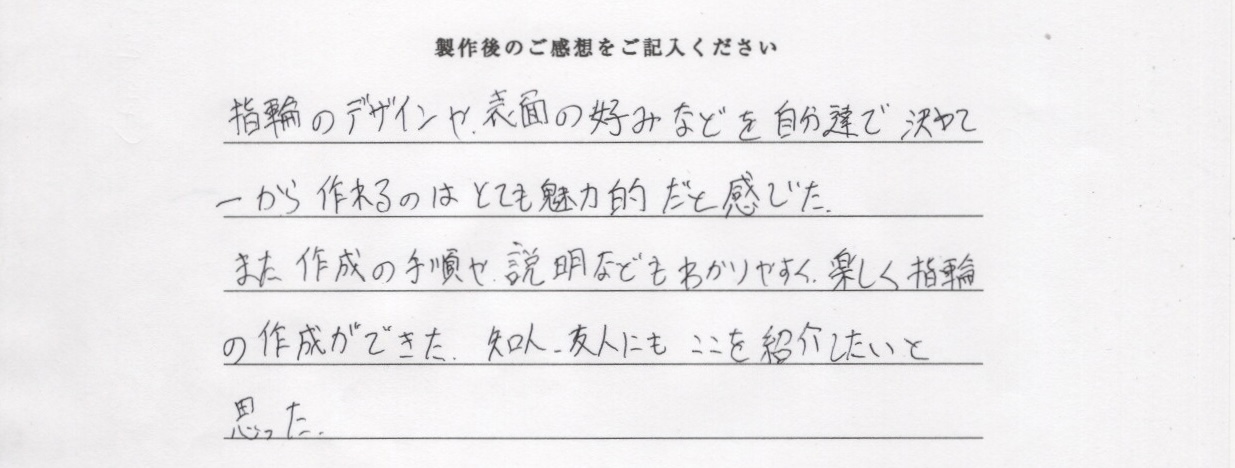 製作後のご感想をご記入ください
指輪のデザインや、表面の好みなどを自分達で決めて
一から作れるのはとても魅力的だと感じた。
また作成の手順や、説明などもわかりやすく、楽しく指輪
の作成ができた。知人、友人にもここを紹介したいと
思った。